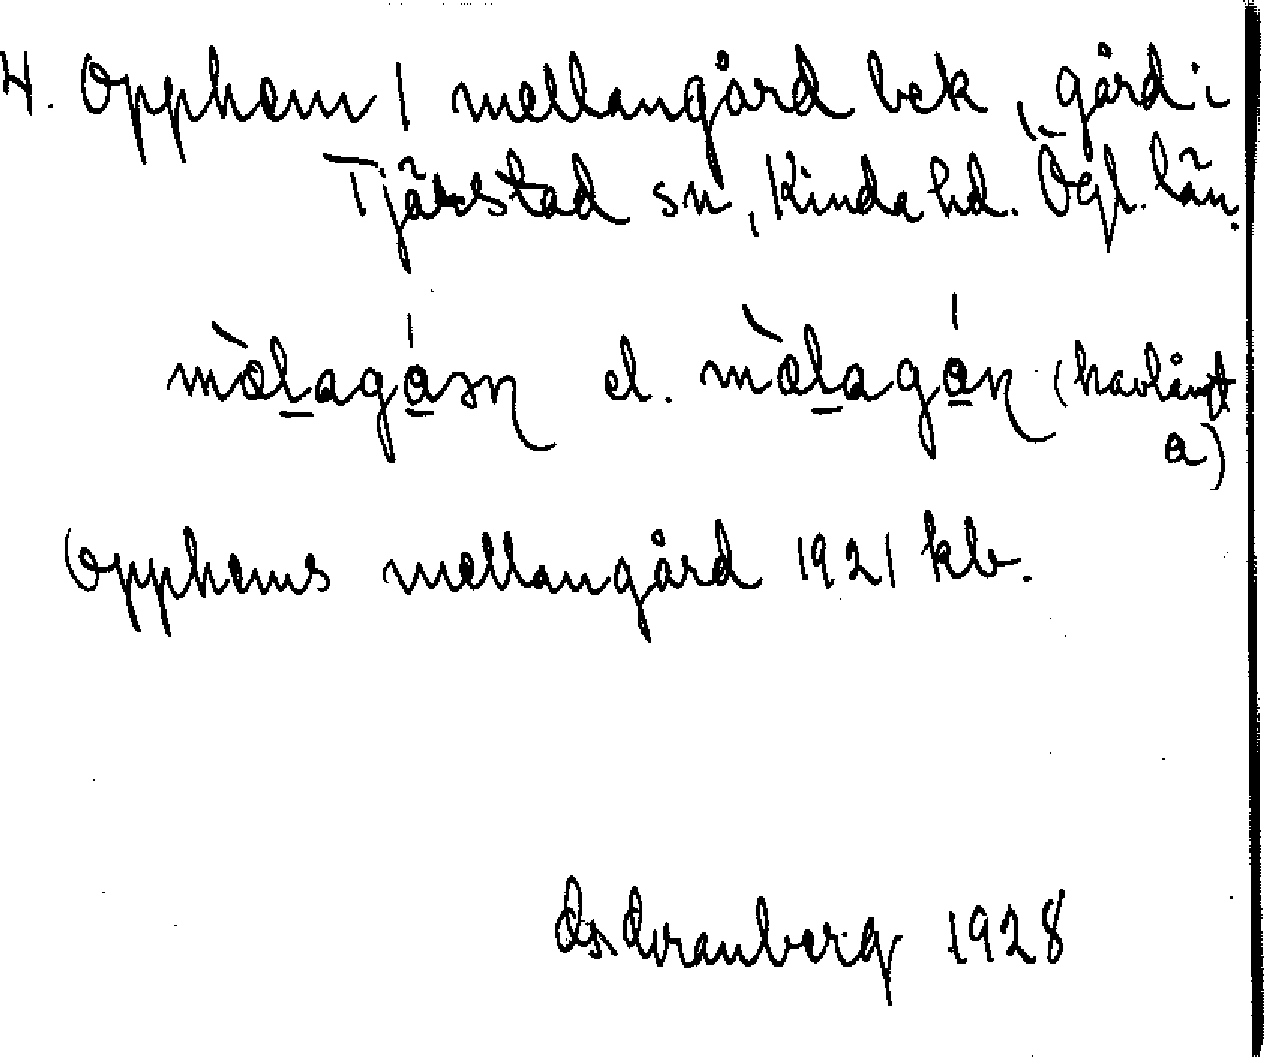 4. Opphem 1 mellangård bek, gård i
Tjärstad sn, Kinda hd. Ögl. län.
mòlagáṣn el. mòlagáṇ (halvlångt
a)
Opphems mellangård 1921 kb.
1928